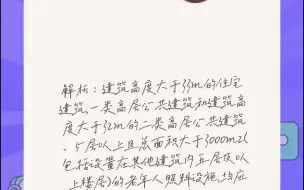 解析：建筑高度大于33m的住宅
建筑、一类高层公共建筑和建筑高
度大于32m的二类高层公共建筑
、5层以上且总面积大于3000m2(
包括设置在其他建筑内五层及以
上楼层)的老年人照料设施，均应